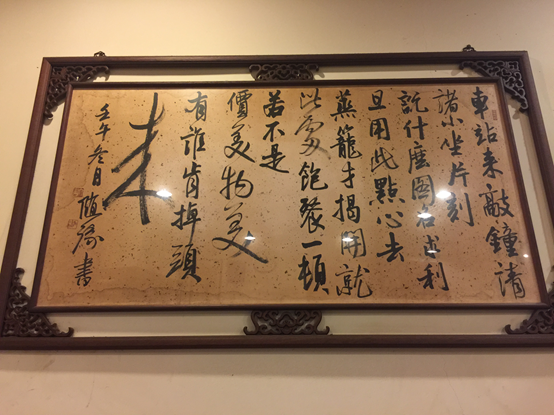 車站未敲鐘請
諸小坐片刻
説什麼圖名求利
且用此點心去
蒸籠才揭開就
此處飽餐一頓
若不是
價美物美
有誰肯掉頭
来
壬午冬日 随 書